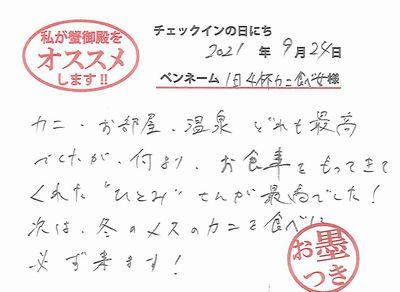 私が蟹御殿を
オススメ
します!!
チェックインの日にち
2021 年 9月 24日
ペンネーム 1日4杯カニ食べ女様
カニ・お部屋・温泉 どれも最高
でしたが、何より、お食事をもってきて
くれた“ひとみ”さんが最高でした!
次は、冬のメスのカニを食べに
必ず来ます!
お墨
つき